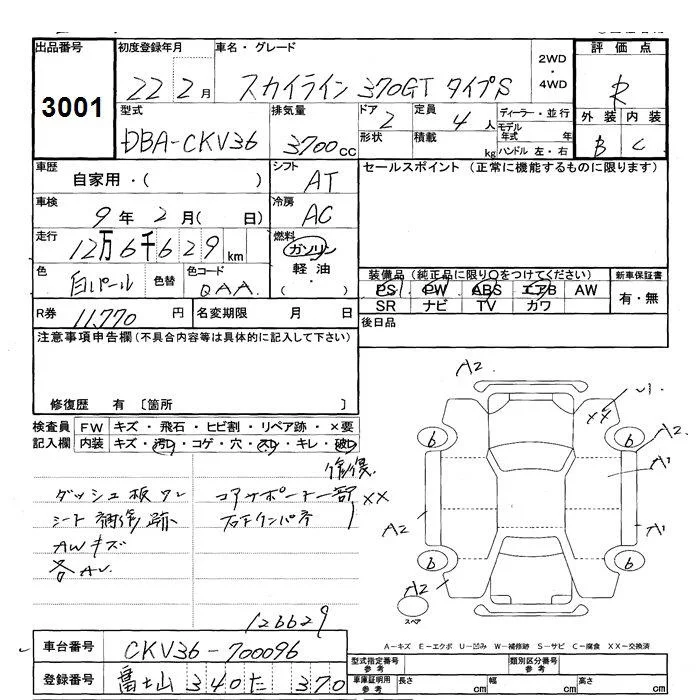 出品番号
3001
初度登録年月
22 2月
車名・グレード
スカイライン 370GT タイプS
2WD
・
4WD
評価点
R
外装 内装
B C
型式
DBA-CKV36
排気量
3700cc
ドア
2
定員
4人
形状
積載
kg
ディーラー・並行
モデル年式 年
ハンドル 左・右
車歴
自家用・( )
シフト
AT
セールスポイント (正常に機能するものに限ります)
車検
9年 2月( 日)
冷房
AC
走行
12万6千629km
燃料
ガソリン
軽油
( ・ )
色
白パール
色替
色コード
QAA
装備品 (純正品に限り○をつけてください)
PS PW ABS エアB AW
SR ナビ TV カワ
新車保証書
有・無
R券
11,770円
名変期限 月 日
後日品
注意事項申告欄 (不具合内容等は具体的に記入して下さい)
修復歴 有 〔箇所 〕
検査員
記入欄
FW キズ・飛石・ヒビ割・リペア跡・×要
内装 キズ・汚レ・コゲ・穴・スレ・キレ・破レ
修復
ダッシュ板ワレ
コアサポート一部 XX
シート補修跡
AWキズ
各AU
126629
A2
U1
XX
b
b
A2
A1
A2
A1
b
b
A2
スペア
A-キズ E-エクボ U-凹み W-補修跡 S-サビ C-腐食 XX-交換済
車台番号
CKV36-700096
登録番号
富士山 340 た 370
型式指定番号
参考
類別区分番号
参考
車庫証明用
参考
長さ cm
幅 cm
高さ cm